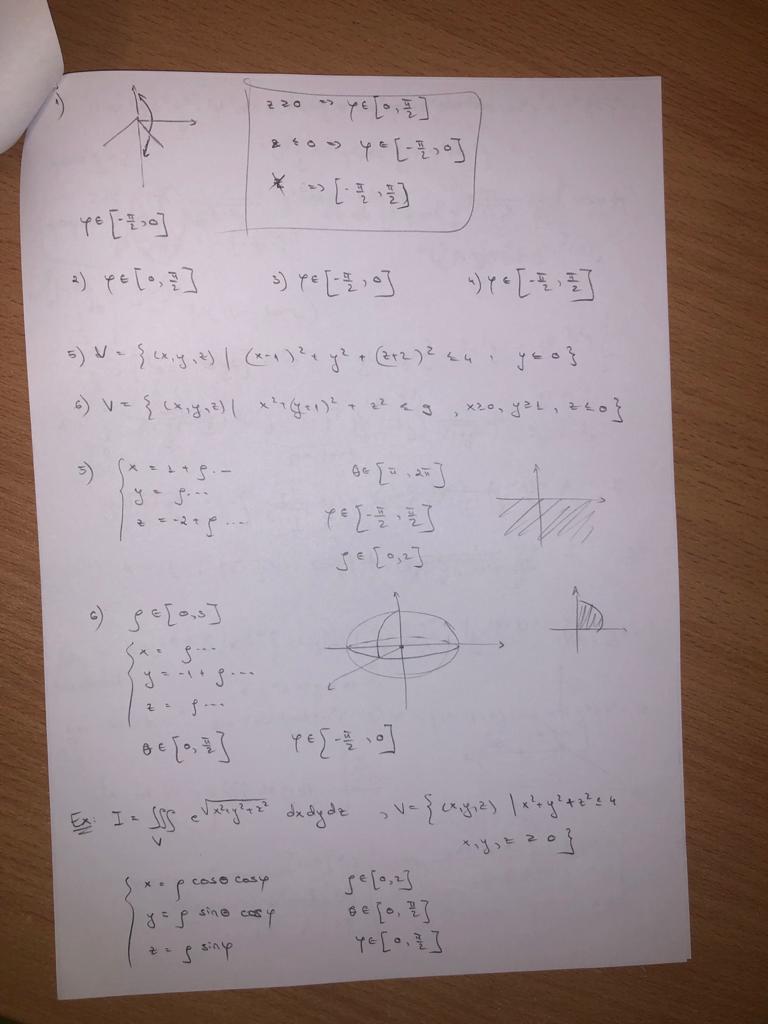 1)
z ≥ 0 => φ ∈ [0, π/2]
z ≤ 0 => φ ∈ [-π/2, 0]
=> [-π/2, π/2]
φ ∈ [-π/2, 0]
2) φ ∈ [0, π/2] 3) φ ∈ [-π/2, 0] 4) φ ∈ [-π/2, π/2]
5) V = {(x,y,z) | (x-1)² + y² + (z+2)² ≤ 4, y ≤ 0}
6) V = {(x,y,z) | x² + (y+1)² + z² ≤ 9, x ≥ 0, y ≥ 1, z ≤ 0}
5) { x = 1 + ρ ... θ ∈ [π, 2π]
y = ρ ... φ ∈ [-π/2, π/2]
z = -2 + ρ ... ρ ∈ [0,2]
6) ρ ∈ [0,3]
{ x = ρ ...
y = -1 + ρ ...
z = ρ ...
θ ∈ [0, π/2] φ ∈ [-π/2, 0]
Ex: I = ∭_V e^√(x²+y²+z²) dxdydz, V = {(x,y,z) | x²+y²+z² ≤ 4
x,y,z ≥ 0}
{ x = ρ cosθ cosφ ρ ∈ [0,2]
y = ρ sinθ cosφ θ ∈ [0, π/2]
z = ρ sinφ φ ∈ [0, π/2]